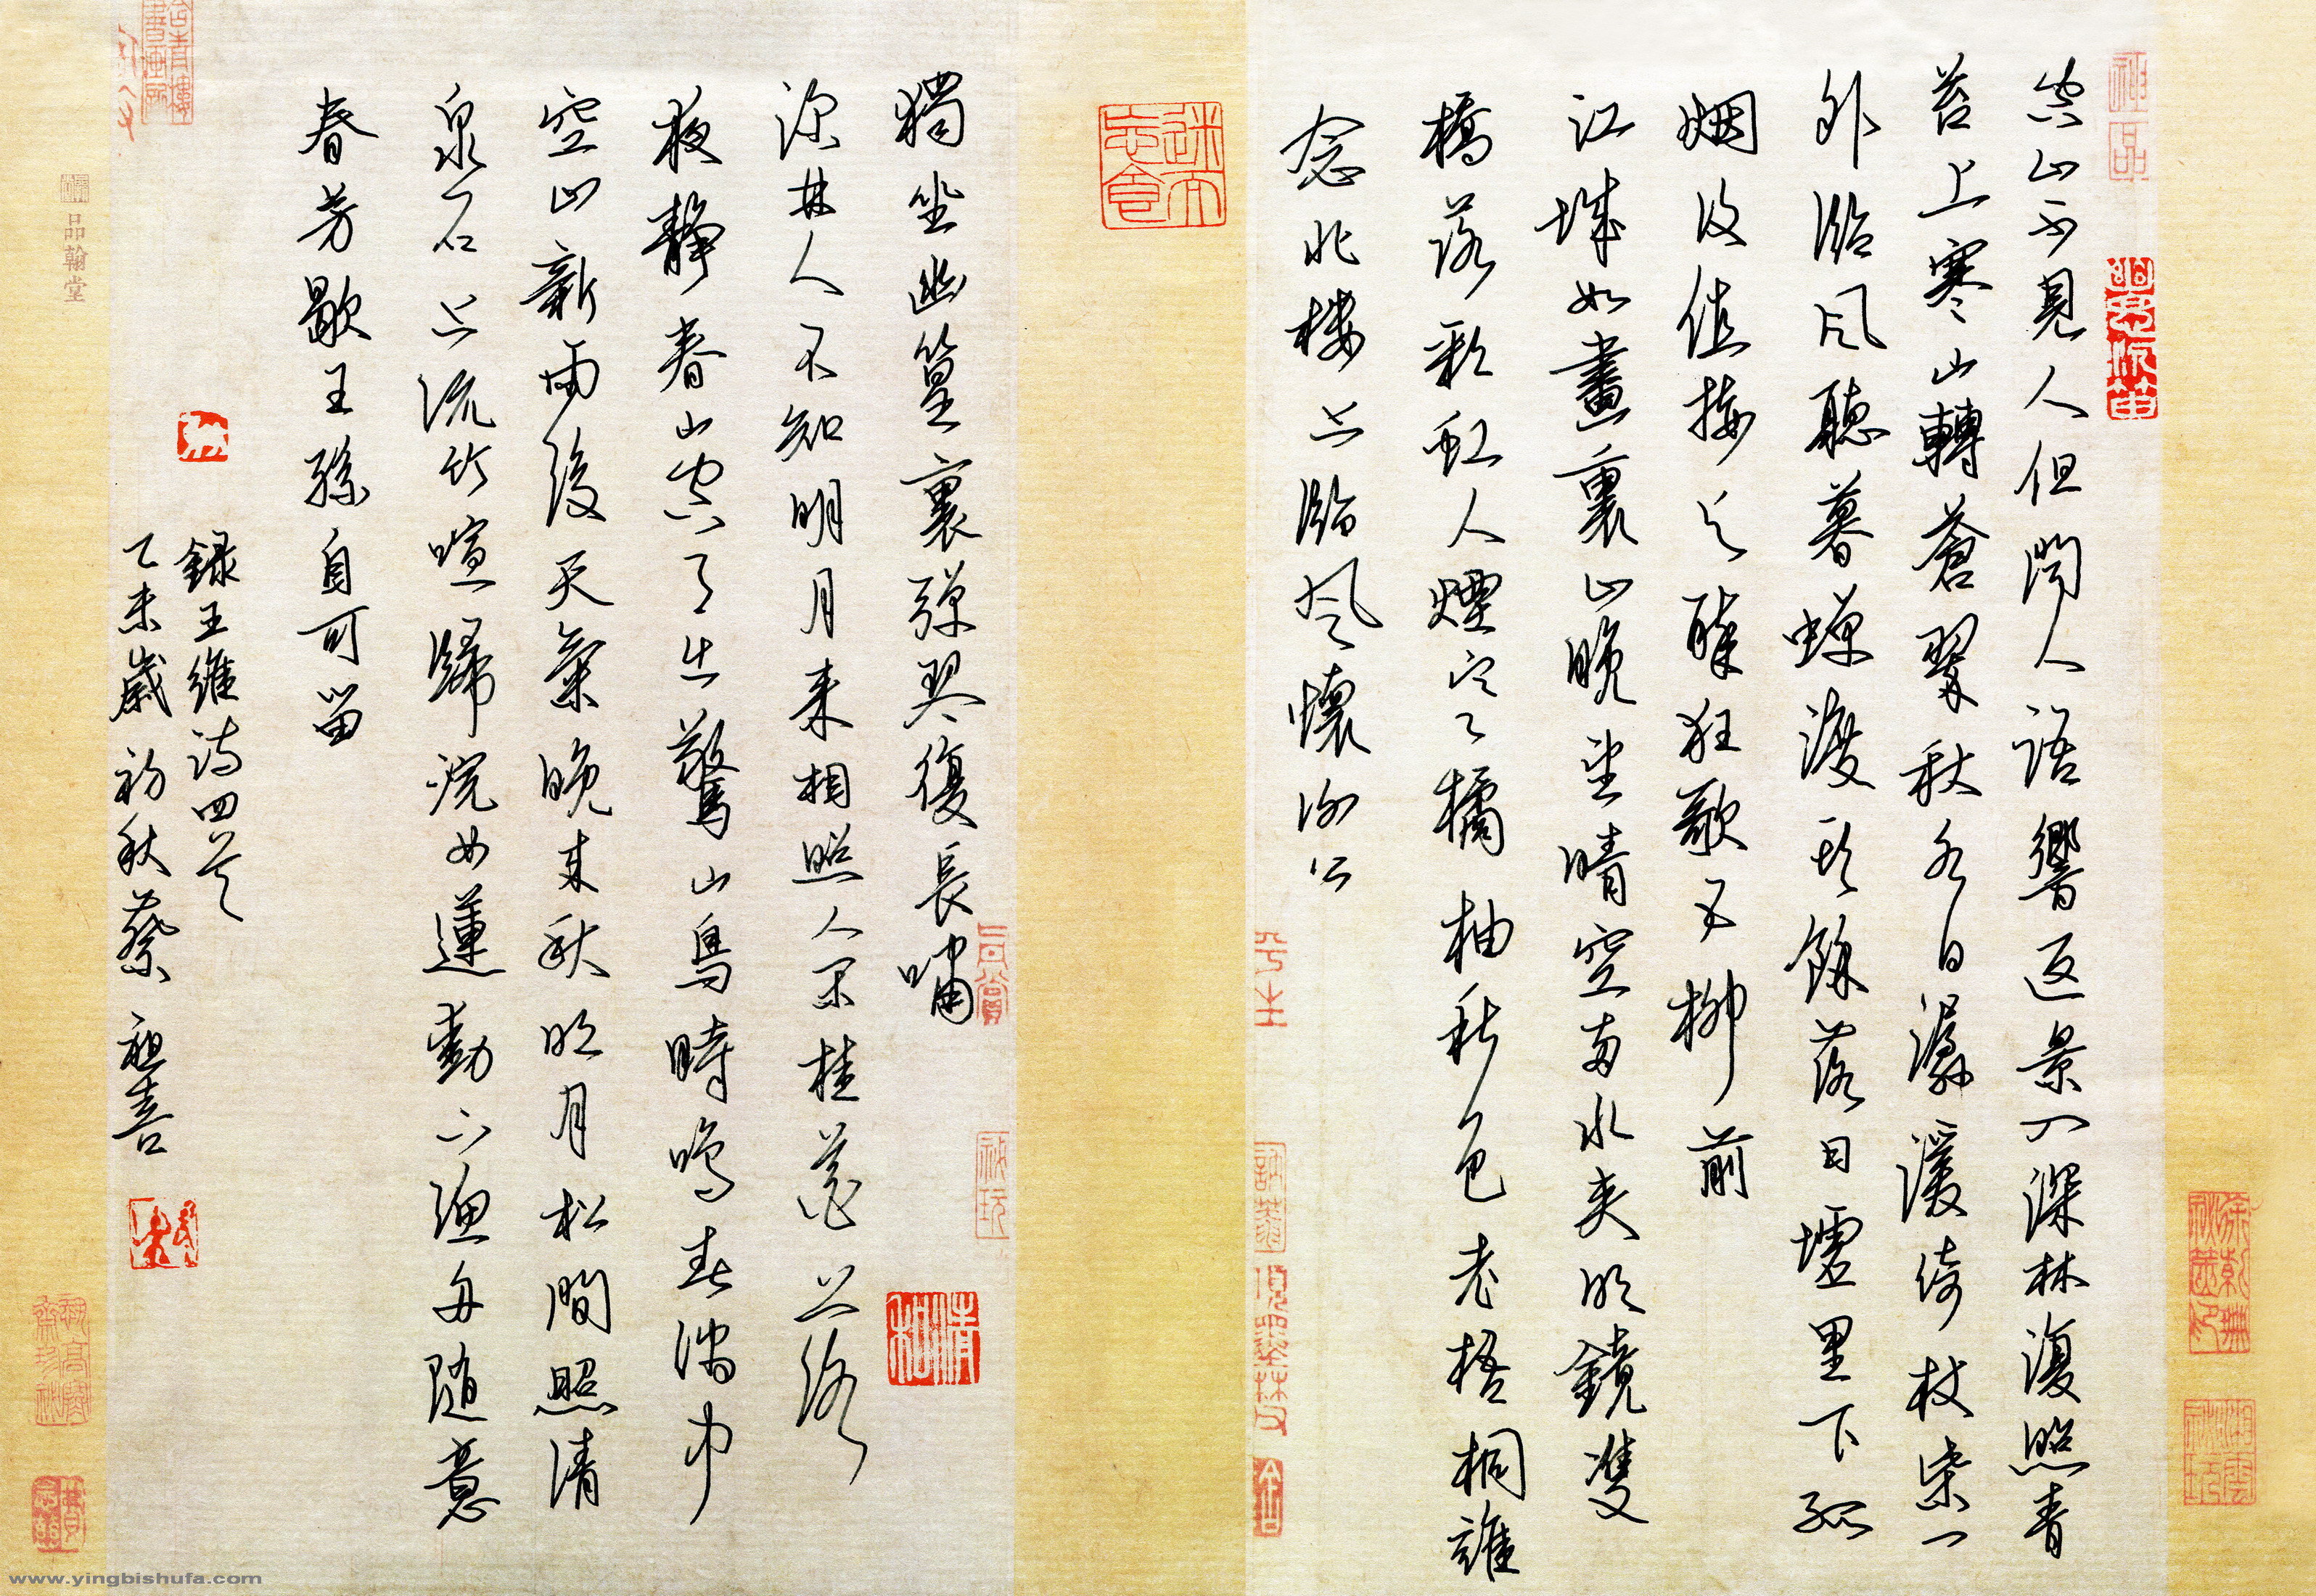 神品
空山不見人但聞人語響返景入深林復照青
苔上寒山轉蒼翠秋水日潺湲倚杖柴門
外臨風聽暮蟬渡頭餘落日墟里下孤
烟復值接輿醉狂歌五柳前
江城如畫裏山晚望晴空兩水夾明鏡雙
橋落彩虹人煙寒橘柚秋色老梧桐誰
念北樓上臨風懷謝公
獨坐幽篁裏彈琴復長嘯
深林人不知明月來相照人閑桂花落
夜靜春山空月出驚山鳥時鳴春澗中
空山新雨後天氣晚來秋明月松間照清
泉石上流竹喧歸浣女蓮動下漁舟隨意
春芳歇王孫自可留
錄王維詩四首
乙未歲初秋蔡祖喜
品翰堂
www.yingbishufa.com